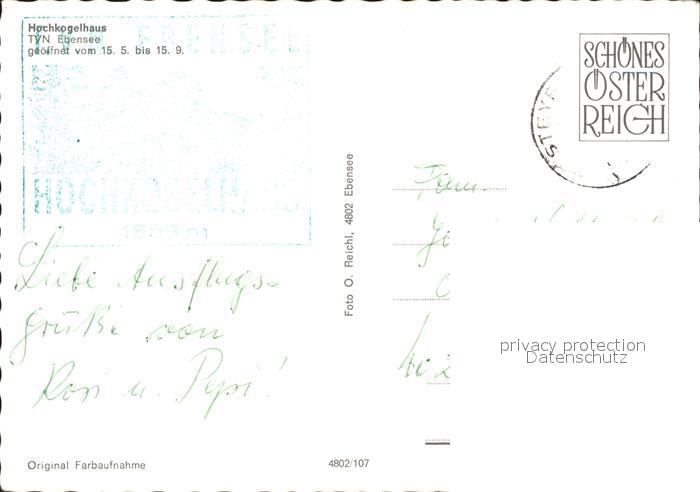 Hochkogelhaus
TVN Ebensee
geöffnet vom 15. 5. bis 15. 9.
EBENSEE
HOCHKOGELHAUS
1558 m
SCHÖNES
ÖSTER
REICH
STEYR
Foto O. Reichl, 4802 Ebensee
Fam.
Liebe Ausflugs-
grüße von
Rosi u. Pepi!
privacy protection
Datenschutz
Original Farbaufnahme
4802/107